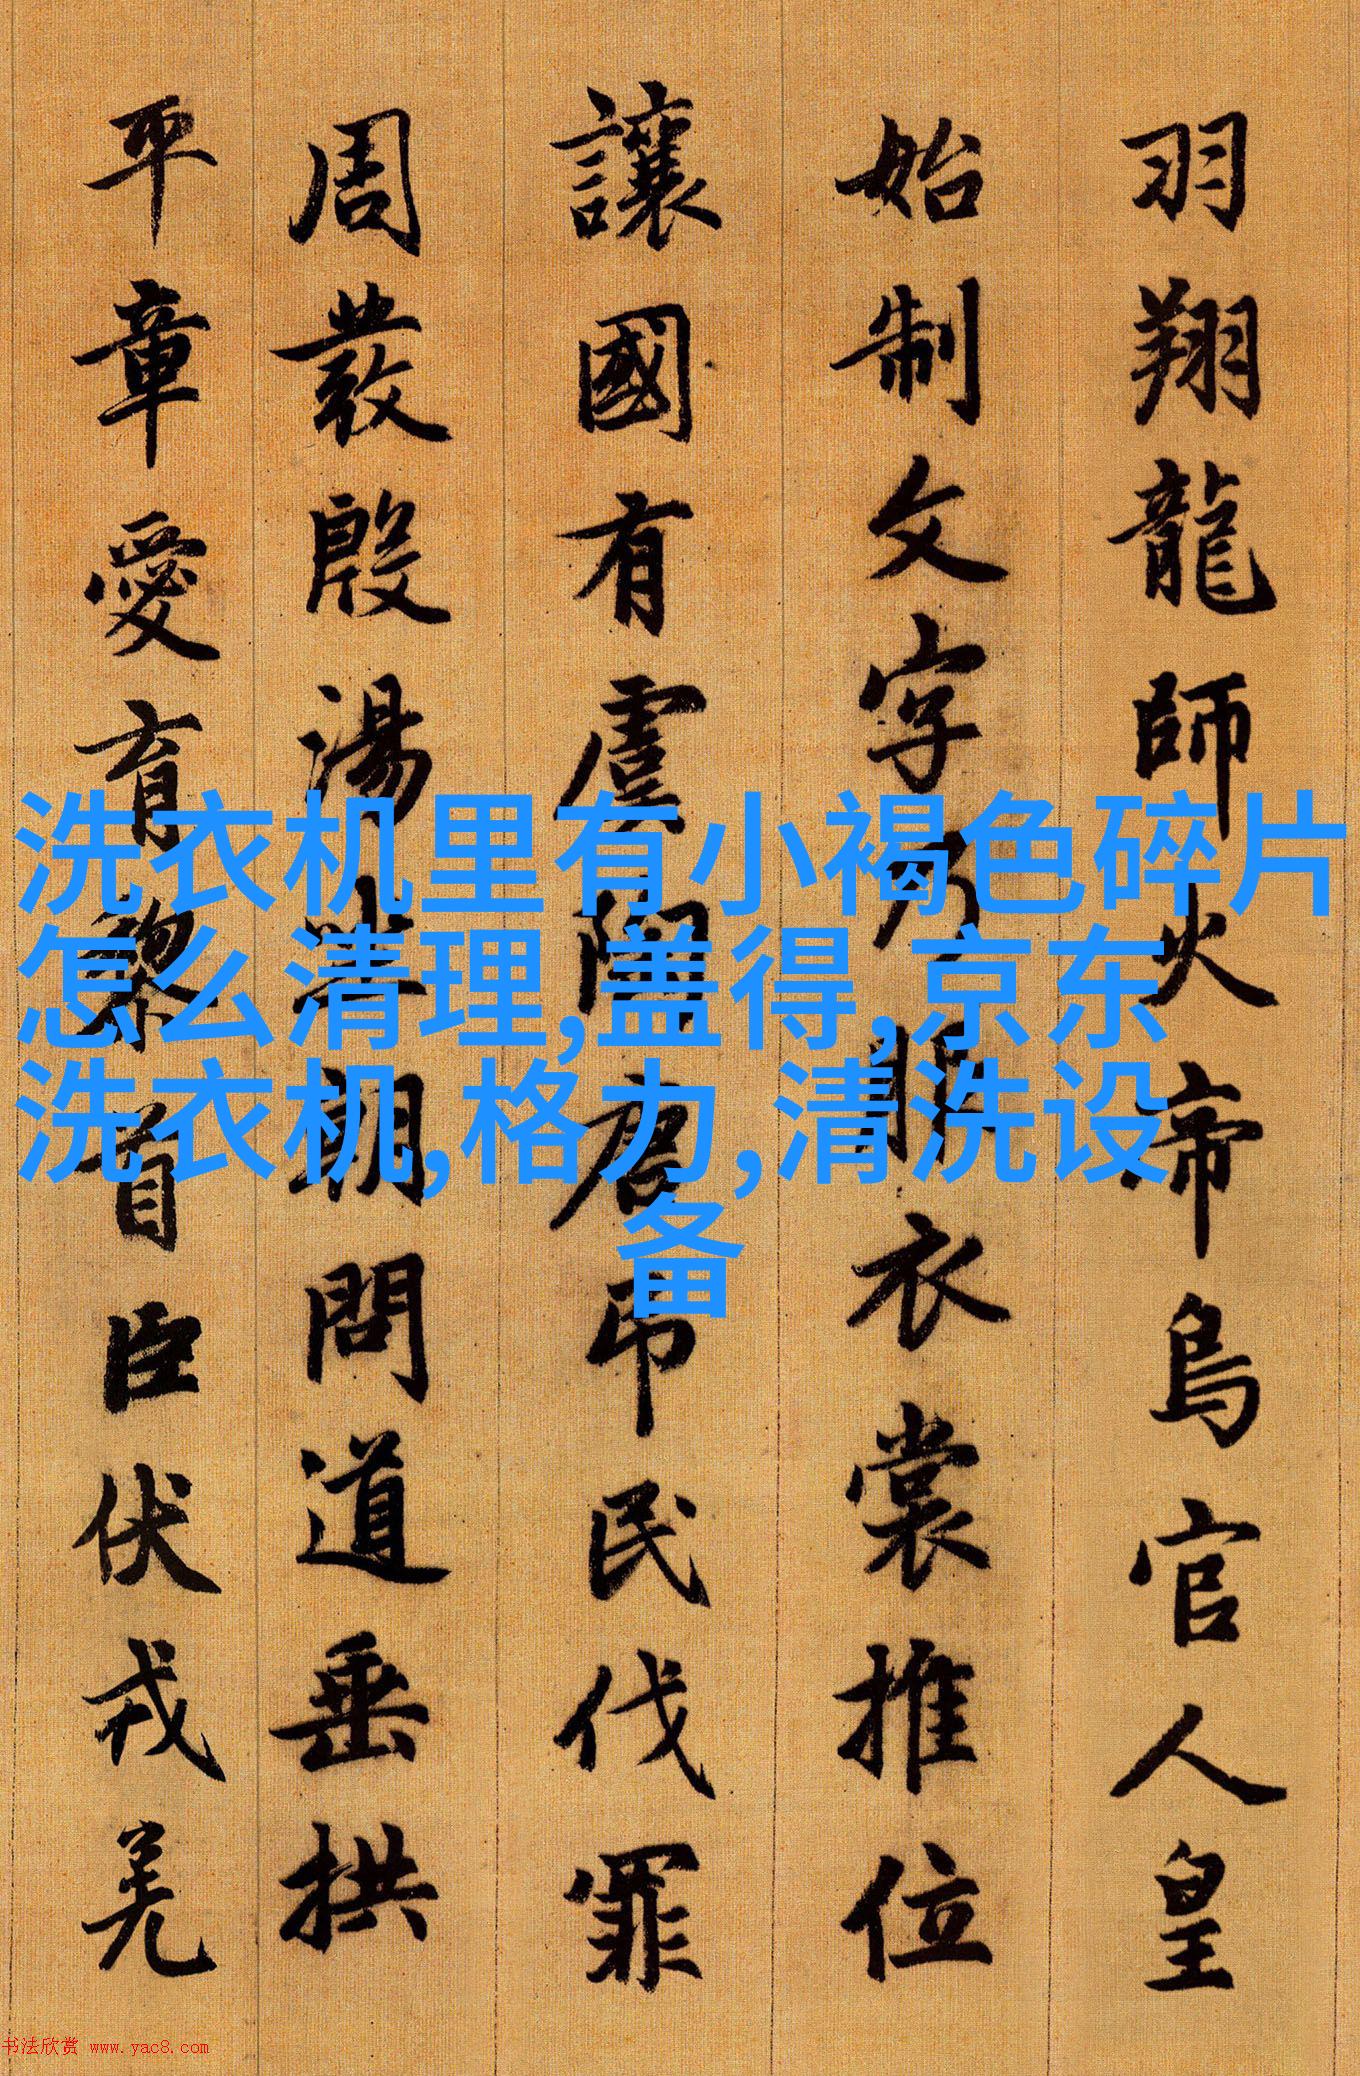 羽翔龍師火帝鳥官人皇
始制文字乃服衣裳推位
讓國有虞陶唐吊民伐罪
周發殷湯坐朝問道垂拱
平章愛育黎首臣伏戎羌
洗衣机里有小褐色碎片
怎么清理,盖得,京东
洗衣机,格力,清洗设
备
书法欣赏 www.yac8.com